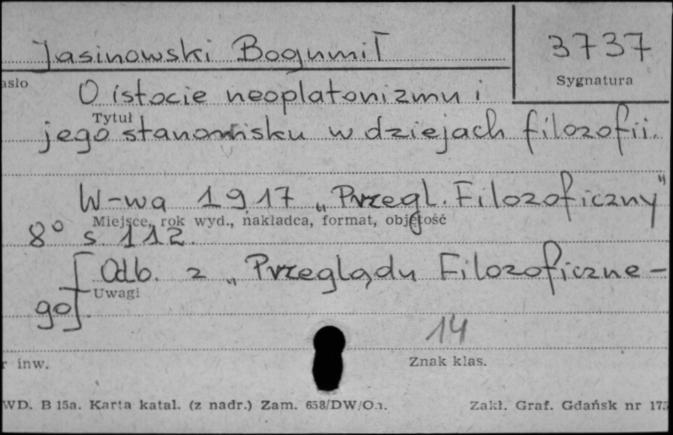 Jasinowski Bogumił
3737
asło
Sygnatura
O istocie neoplatonizmu i
Tytuł
jego stanowisku w dziejach filozofii.
W-wa 1917 „Przegl. Filozoficzny"
Miejsce, rok wyd., nakładca, format, objętość
8° s. 112.
[Odb. z „Przeglądu Filozoficzne-
Uwagi
go].
14
r inw.
Znak klas.
WD. B 15a. Karta katal. (z nadr.) Zam. 658/DW/O.
Zakł. Graf. Gdańsk nr 173